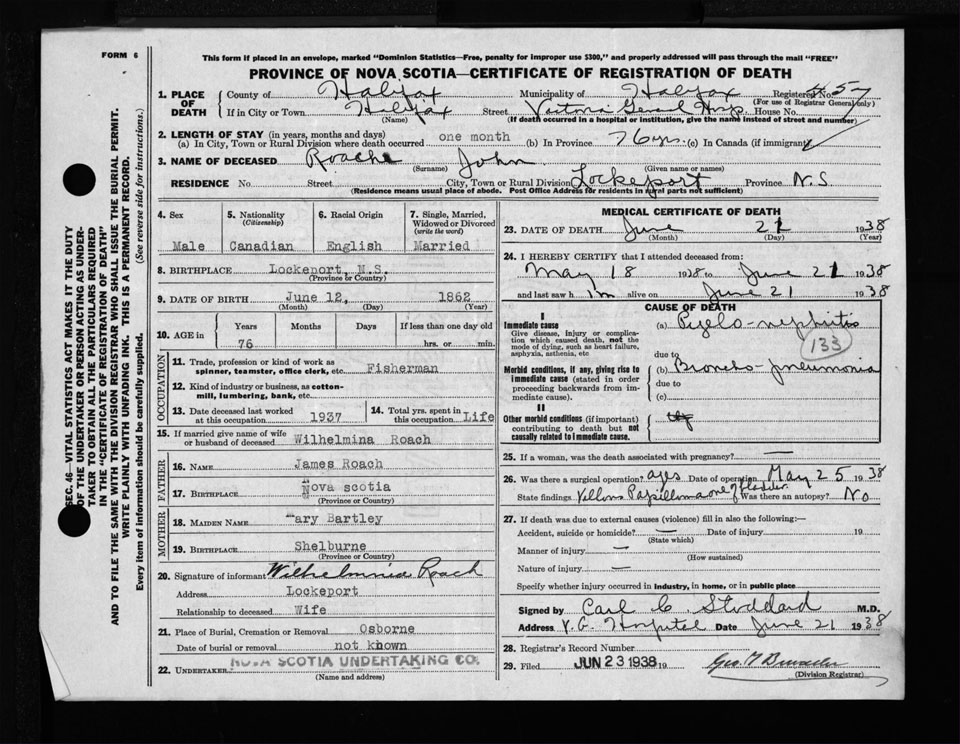 FORM 6
This form if placed in an envelope, marked "Dominion Statistics—Free, penalty for improper use $300," and properly addressed will pass through the mail "FREE"
PROVINCE OF NOVA SCOTIA—CERTIFICATE OF REGISTRATION OF DEATH
1. PLACE OF DEATH
County of Halifax Municipality of Halifax Registered No. 57
(For use of Registrar General only)
If in City or Town Halifax Street Victoria General Hosp. House No.
(Name) (If death occurred in a hospital or institution, give the name instead of street and number)
2. LENGTH OF STAY (in years, months and days)
(a) In City, Town or Rural Division where death occurred one month (b) In Province 76 yrs. (c) In Canada (if immigrant)
3. NAME OF DECEASED Roache John
(Surname) (Given name or names)
RESIDENCE No. Street City, Town or Rural Division Lockeport Province N.S.
(Residence means usual place of abode. Post Office Address for residents in rural parts not sufficient)
4. Sex 5. Nationality (Citizenship) 6. Racial Origin 7. Single, Married, Widowed or Divorced (write the word)
Male Canadian English Married
8. BIRTHPLACE Lockeport, N.S.
(Province or Country)
9. DATE OF BIRTH June 12, 1862
(Month) (Day) (Year)
10. AGE in Years Months Days If less than one day old
76 hrs. or min.
OCCUPATION
11. Trade, profession or kind of work as
spinner, teamster, office clerk, etc. Fisherman
12. Kind of industry or business, as cotton-
mill, lumbering, bank, etc.
13. Date deceased last worked
at this occupation 1937
14. Total yrs. spent in
this occupation Life
15. If married give name of wife
or husband of deceased Wilhelmina Roach
FATHER
16. NAME James Roach
17. BIRTHPLACE Nova scotia
(Province or Country)
MOTHER
18. MAIDEN NAME Mary Bartley
19. BIRTHPLACE Shelburne
(Province or Country)
20. Signature of informant Wilhelminia Roach
Address Lockeport
Relationship to deceased Wife
21. Place of Burial, Cremation or Removal Osborne
Date of burial or removal not known
22. UNDERTAKER NOVA SCOTIA UNDERTAKING CO.
(Name and address)
MEDICAL CERTIFICATE OF DEATH
23. DATE OF DEATH June 21 1938
(Month) (Day) (Year)
24. I HEREBY CERTIFY that I attended deceased from:
May 18 1938 to June 21 1938
and last saw him alive on June 21 1938
CAUSE OF DEATH
I
Immediate cause
Give disease, injury or complica-
tion which caused death, not the
mode of dying, such as heart failure,
asphyxia, asthenia, etc
(a) Pyelo-nephritis
133
due to
Morbid conditions, if any, giving rise to
immediate cause (stated in order
proceeding backwards from im-
mediate cause).
(b) Broncho-pneumonia
due to
(c)
II
Other morbid conditions (if important)
contributing to death but not
causally related to immediate cause.
25. If a woman, was the death associated with pregnancy? —
26. Was there a surgical operation? yes Date of operation May 25 1938
State findings Villous Papilloma of bladder. Was there an autopsy? No
27. If death was due to external causes (violence) fill in also the following:—
Accident, suicide or homicide? — Date of injury 19
(State which)
Manner of injury —
(How sustained)
Nature of injury —
Specify whether injury occurred in industry, in home, or in public place
Signed by Carl C Stoddard M.D.
Address V.G. Hospital Date June 21 1938
28. Registrar's Record Number
29. Filed JUN 23 1938 19
(Division Registrar)
SEC. 46—VITAL STATISTICS ACT MAKES IT THE DUTY
OF THE UNDERTAKER OR PERSON ACTING AS UNDER-
TAKER TO OBTAIN ALL THE PARTICULARS REQUIRED
IN THE "CERTIFICATE OF REGISTRATION OF DEATH"
AND TO FILE THE SAME WITH THE DIVISION REGISTRAR WHO SHALL ISSUE THE BURIAL PERMIT.
WRITE PLAINLY WITH UNFADING INK. THIS IS A PERMANENT RECORD.
Every item of information should be carefully supplied. (See reverse side for instructions.)